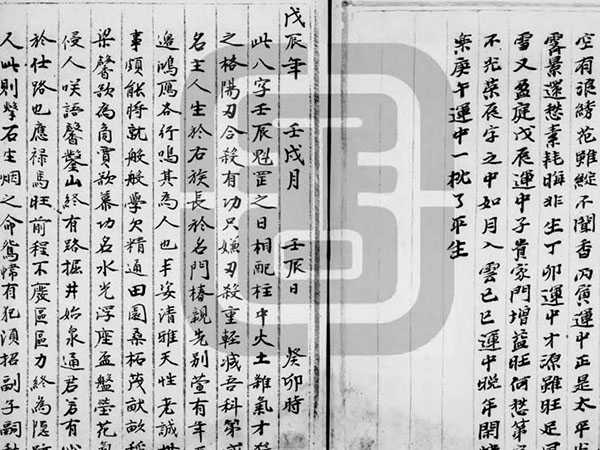 空有浪雖綻不聞香丙寅運中正是太平
霽景還愁素耗晦非生丁卯運中才源雖旺足
雪又盈庭戊辰運中子貴家門增益旺何愁第
不光榮辰字之中如月入雲己巳運中晚年閑
樂庚午運中一枕了平生
戊辰年 壬戌月 壬辰日 癸卯時
此八字壬辰魁罡之日相配柱中火土雜氣才
之格陽刃合殺有功只嫌刃殺重輕減吾科第
名主人生於右族長於名門椿親先别萱有年
邊鴻鴈各行鳴其為人也丰姿清雅天性老誠
事頗能將就般般學欠精通田園桑柘茂畎畝稻
梁馨欲為商賈欲慕功名水光浮座盃盤瑩花氣
侵人咲語馨鑿山終有路掘井始泉通君若有
於仕路也應祿馬旺前程不慶區區力終為隱
人此則擊石生烟之命鴛幃有犯須招副子嗣